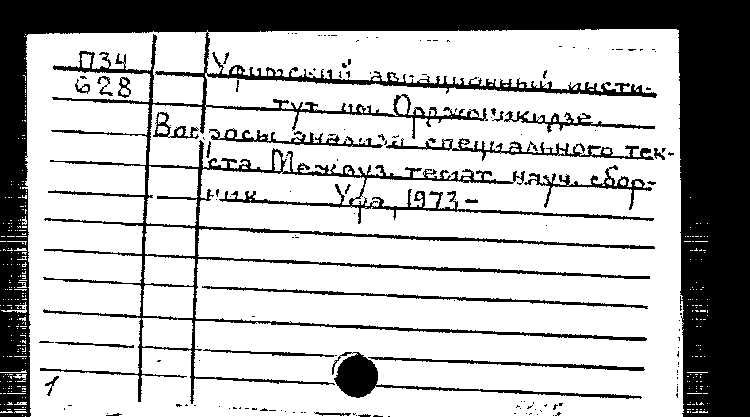 П34
628
Уфимский авиационный инсти-
тут им. Орджоникидзе.
Вопросы анализа специального тек-
ста. Межвуз. темат. науч. сбор-
ник. Уфа, 1973-
1